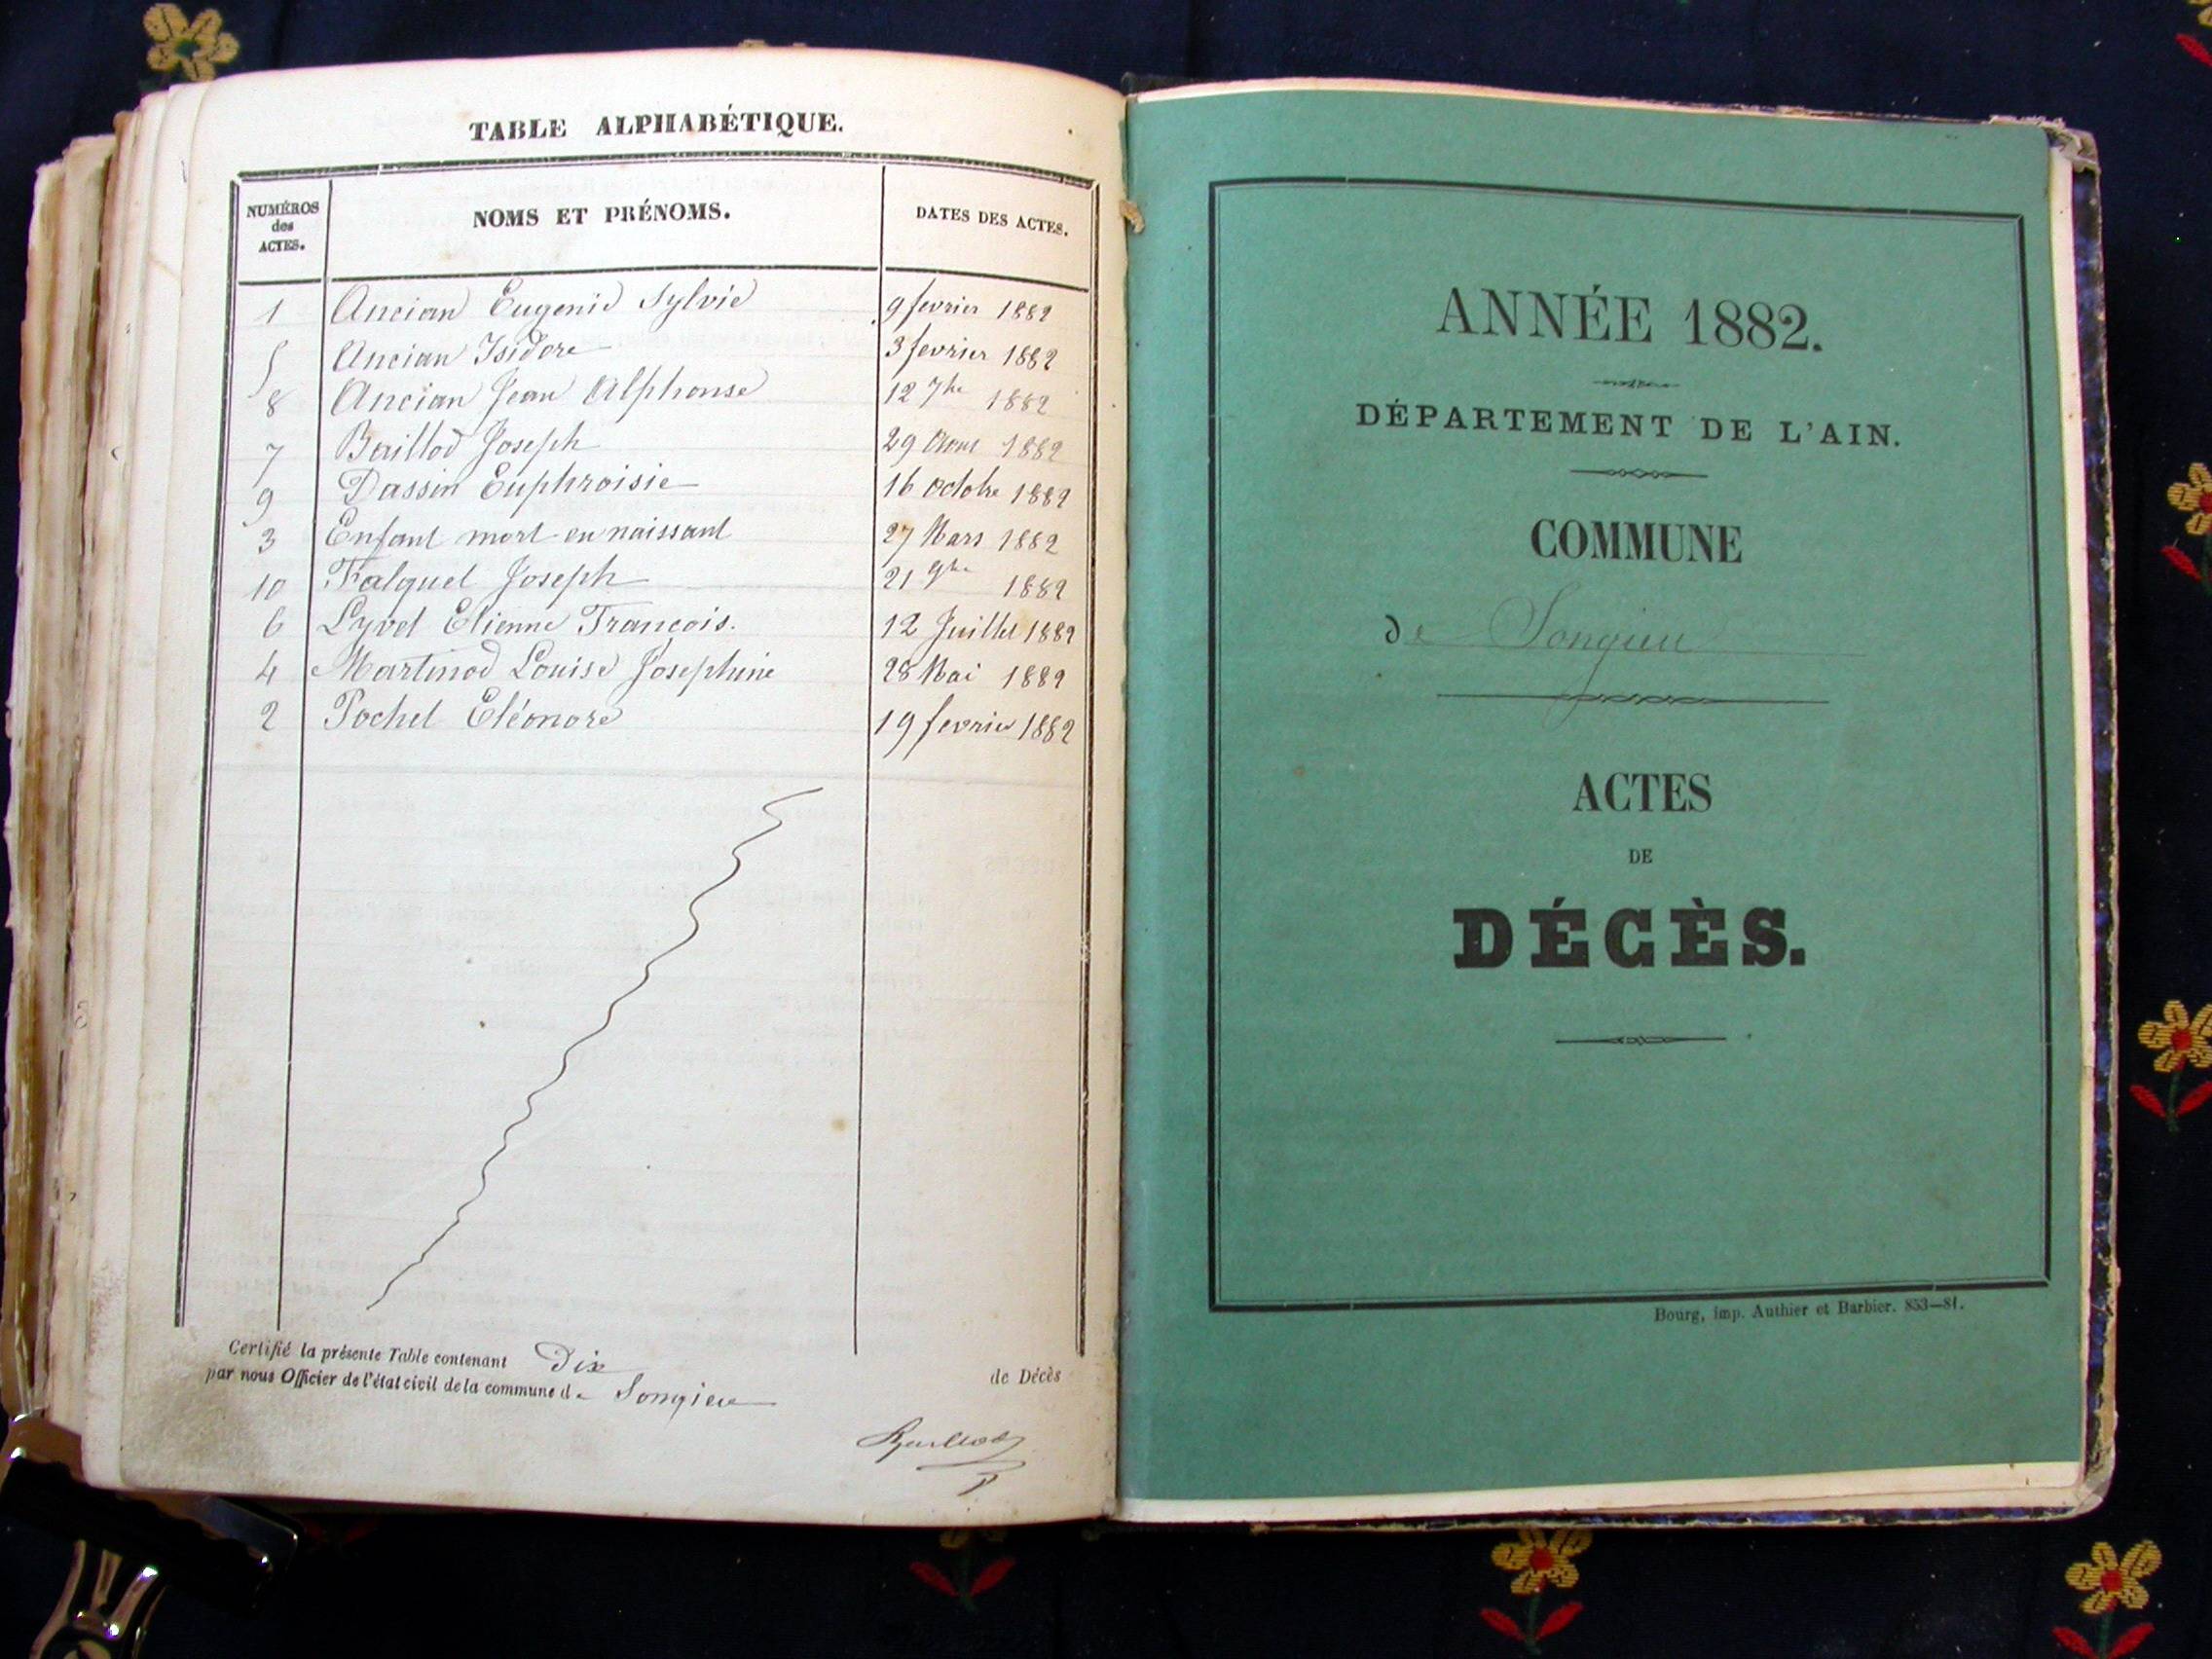 TABLE ALPHABÉTIQUE.
NUMÉROS des ACTES. NOMS ET PRÉNOMS. DATES DES ACTES.
1 Ancian Eugenie Sylvie 9 fevrier 1882
5 Ancian Isidore 3 fevrier 1882
8 Ancian Jean Alphonse 12 7bre 1882
7 Baillod Joseph 29 Aout 1882
9 Dassin Euphroisie 16 octobre 1882
3 Enfant mort en naissant 27 Mars 1882
10 Falquet Joseph 21 9bre 1882
6 Lyvet Etienne François. 12 Juillet 1882
4 Martinod Louise Josephine 28 Mai 1882
2 Pochet Eléonore 19 fevrier 1882
Certifié la présente Table contenant Dix de Décès
par nous Officier de l'état civil de la commune de Songieu
ANNÉE 1882.
DÉPARTEMENT DE L'AIN.
COMMUNE
de Songieu
ACTES
DE
DÉCÈS.
Bourg, imp. Authier et Barbier. 853—81.